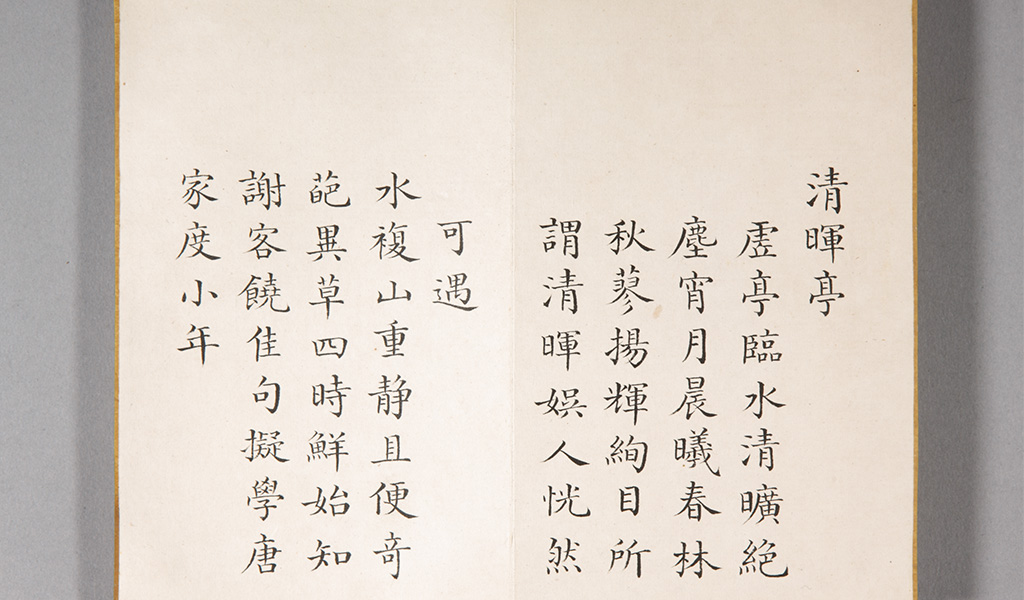 清暉亭
虗亭臨水清曠絶
塵宵月晨曦春林
秋蓼揚輝絢目所
謂清暉娛人恍然
可遇
水複山重静且便竒
葩異草四時鮮始知
謝客饒佳句擬學唐
家度小年